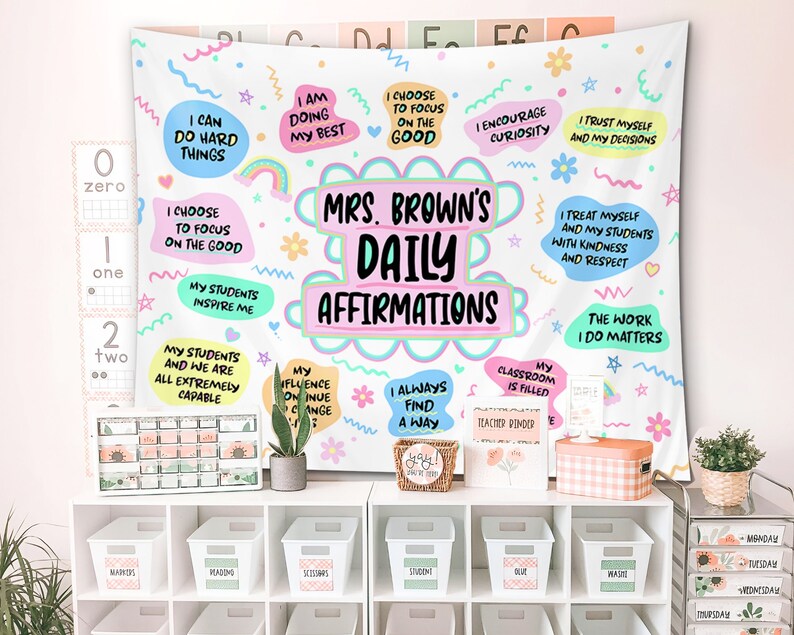 Cc
Dd
Ee
Ff
I CAN
DO HARD
THINGS
I AM
DOING
MY BEST
I CHOOSE
TO FOCUS
ON THE
GOOD
I ENCOURAGE
CURIOSITY
I TRUST MYSELF
AND MY DECISIONS
0
zero
1
one
2
two
MRS. BROWN'S
DAILY
AFFIRMATIONS
I CHOOSE
TO FOCUS
ON THE GOOD
I TREAT MYSELF
AND MY STUDENTS
WITH KINDNESS
AND RESPECT
MY STUDENTS
INSPIRE ME
THE WORK
I DO MATTERS
MY STUDENTS
AND WE ARE
ALL EXTREMELY
CAPABLE
MY
I ALWAYS
FIND
A WAY
MY
CLASSROOM
IS FILLED
TEACHER BINDER
yay!
YOU'RE HERE!
MARKERS
READING
SCISSORS
STUDENT
GLUE
WASHI
MONDAY
TUESDAY
WEDNESDAY
THURSDAY